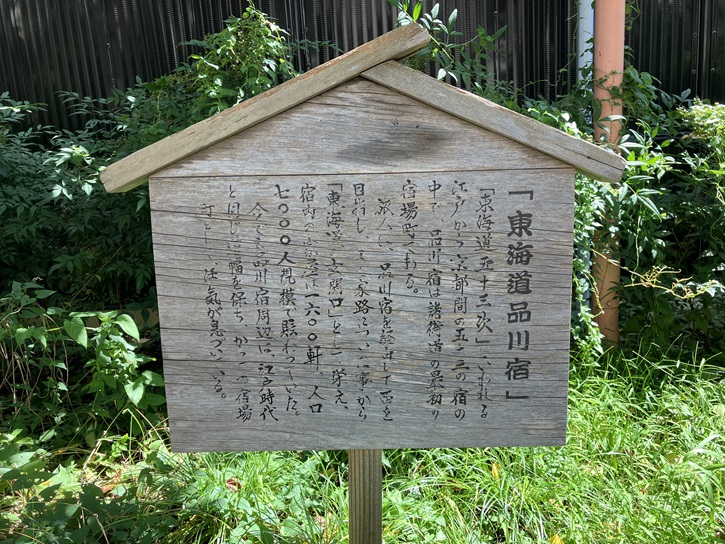 「東海道品川宿」
「東海道五十三次」といわれる
江戸から京都間の五十三の宿の
中で、品川宿は諸街道の最初の
宿場町である。
旅人は、品川宿を経由して西を
目指し、家路に
「東海道の玄関口」として栄え、
宿内の家屋は一六〇〇軒、人口
七〇〇〇人規模で賑わっていた。
今でも品川宿周辺は、江戸時代
と同じ道幅を保ち、かつての宿場
町として、活気が息づいている。